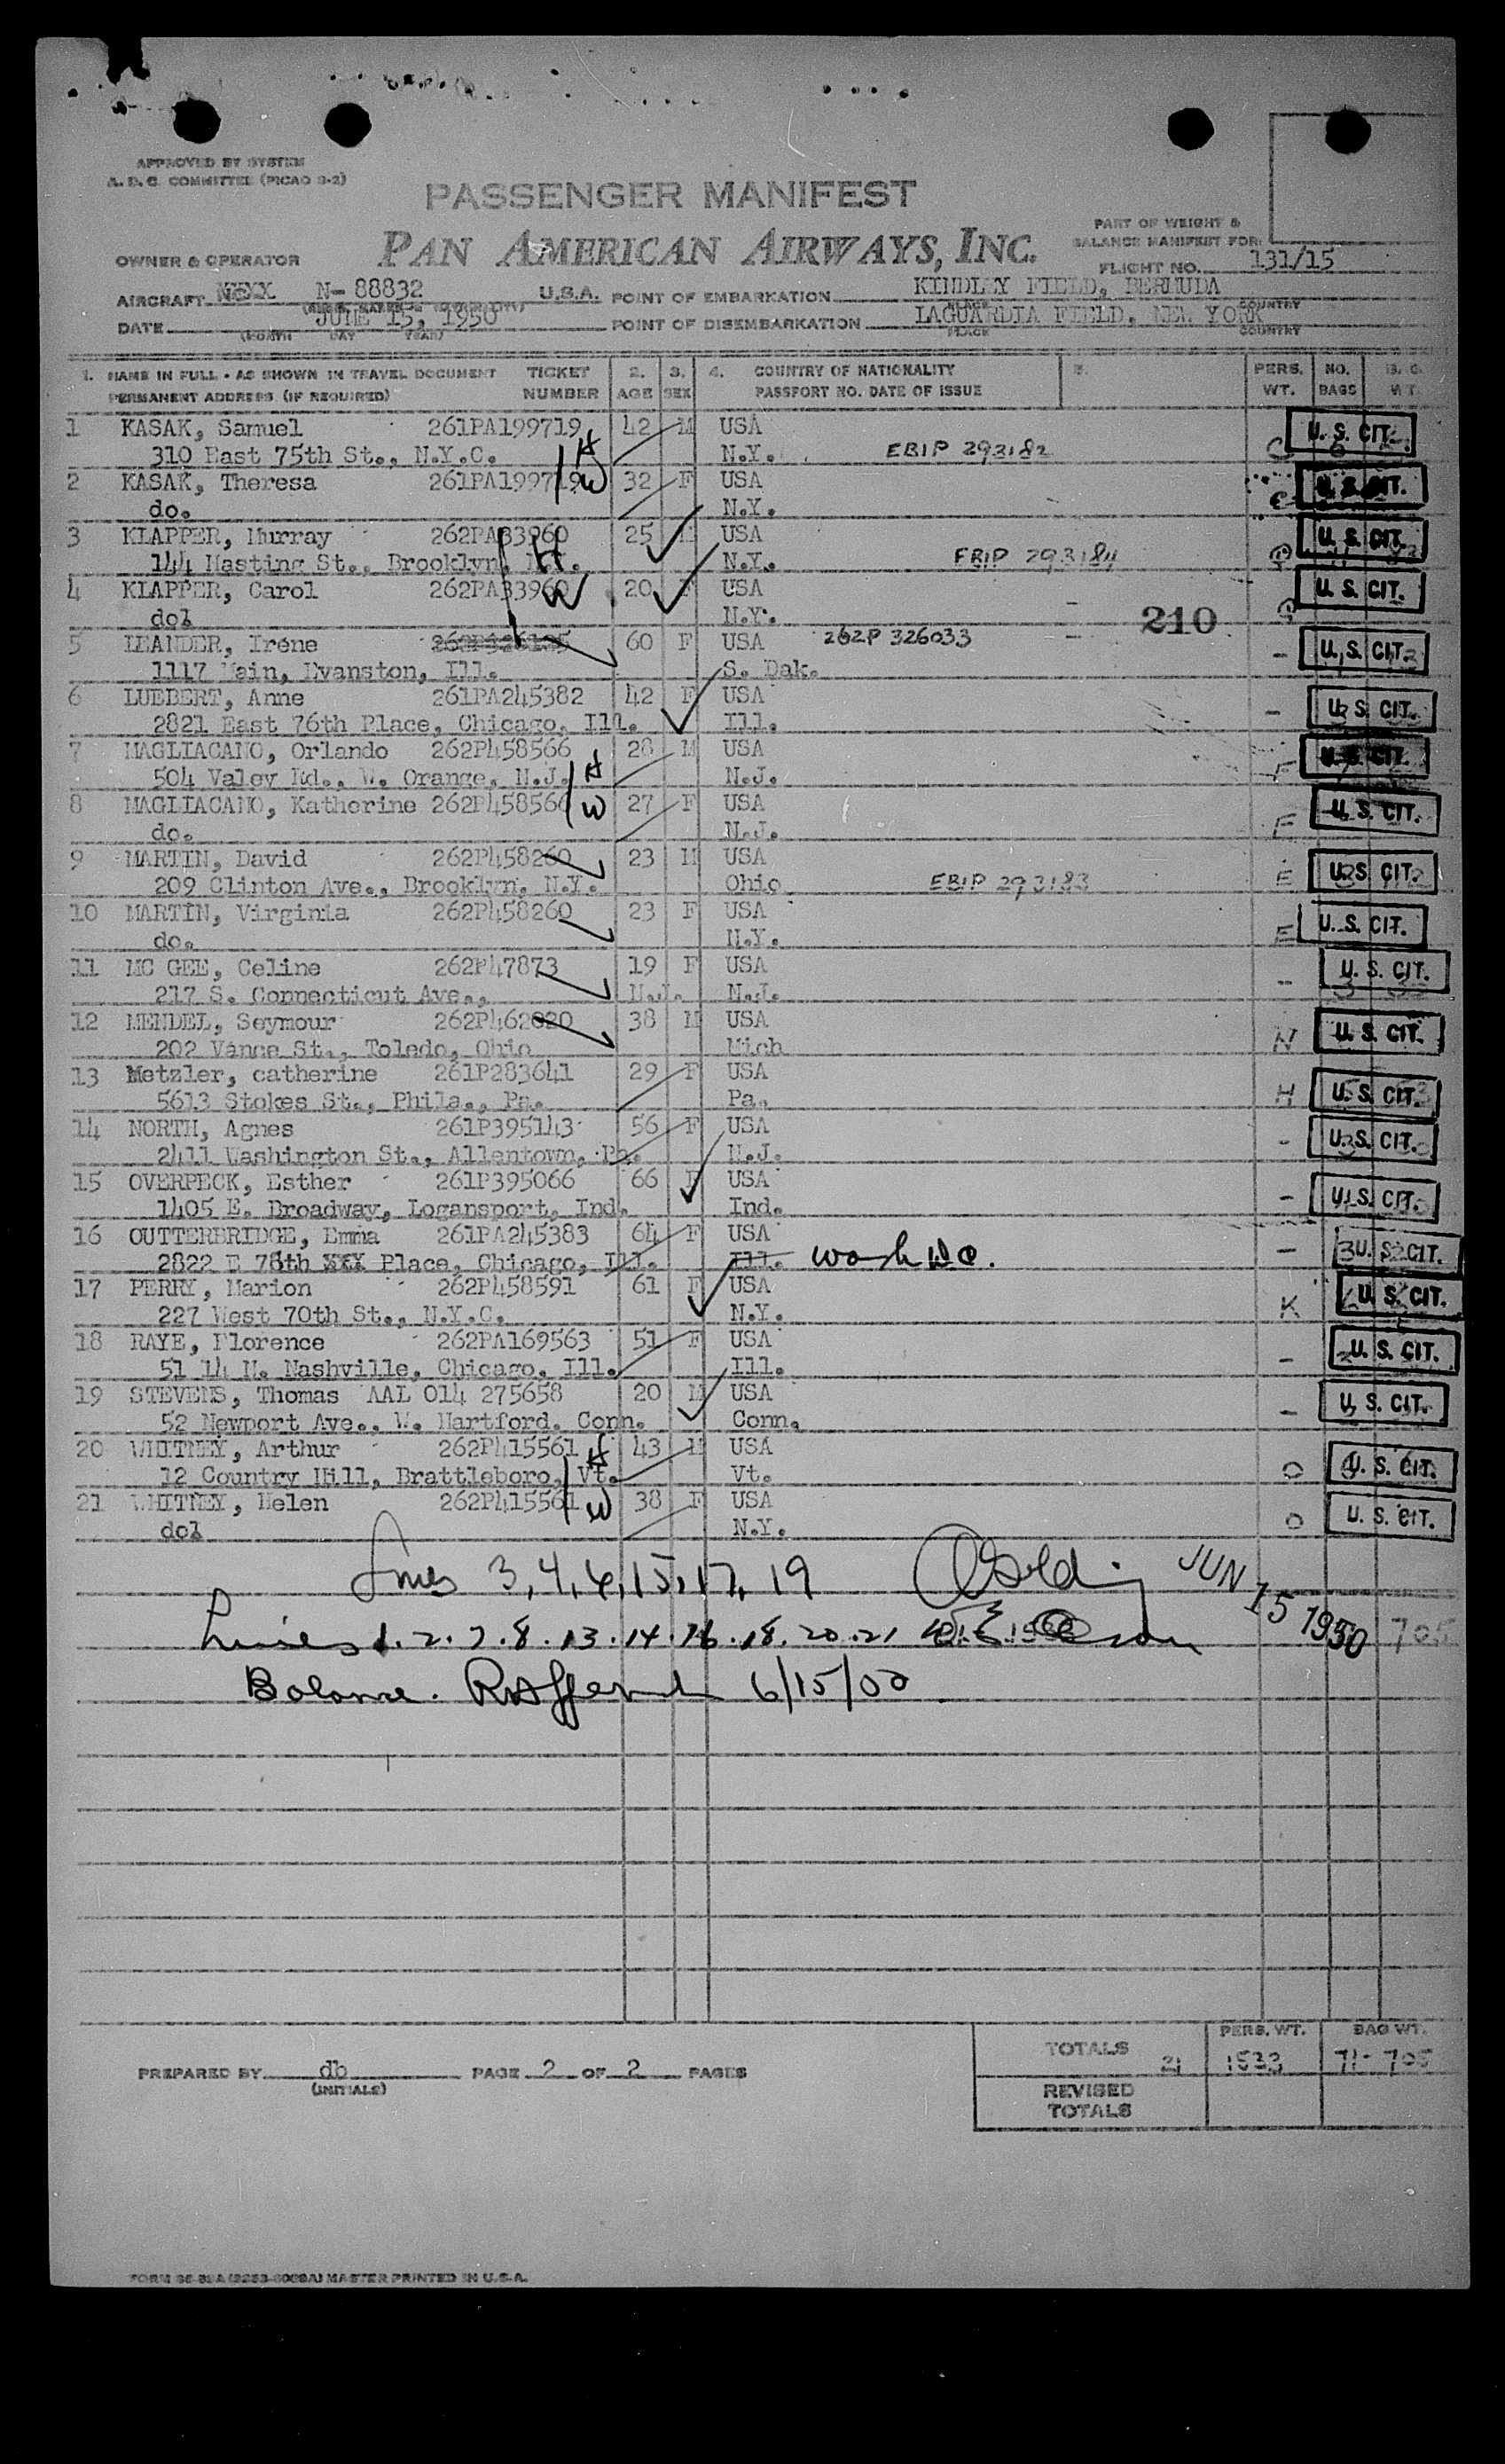 APPROVED BY SYSTEM
A. D. C. COMMITTEE (PICAO 9-2)
PASSENGER MANIFEST
PAN AMERICAN AIRWAYS, INC.
PART OF WEIGHT &
BALANCE MANIFEST FOR:
OWNER & OPERATOR
FLIGHT NO. 131/15
AIRCRAFT N- 88832 U.S.A. POINT OF EMBARKATION KINDLEY FIELD, BERMUDA
PLACE COUNTRY
DATE JUNE 15, 1950 POINT OF DISEMBARKATION LAGUARDIA FIELD, NEW YORK
(MONTH DAY YEAR) PLACE COUNTRY
1. NAME IN FULL - AS SHOWN IN TRAVEL DOCUMENT TICKET 2. 3. 4. COUNTRY OF NATIONALITY PERS. NO. B. G.
PERMANENT ADDRESS (IF REQUIRED) NUMBER AGE SEX PASSPORT NO. DATE OF ISSUE WT. BAGS WT.
1 KASAK, Samuel 261PA199719 42 M USA U. S. CIT.
310 East 75th St., N.Y.C. H N.Y. EBIP 293182 C
2 KASAK, Theresa 261PA199719 W 32 F USA U. S. CIT.
do. N.Y. C
3 KLAPPER, Murray 262PA33960 25 M USA U. S. CIT.
144 Hasting St., Brooklyn, N.Y. H N.Y. EBIP 293184
4 KLAPPER, Carol 262PA33960 W 20 F USA U. S. CIT.
dol N.Y. 210
5 LEANDER, Irene 60 F USA 262P 326033 - U. S. CIT.
1117 Main, Evanston, Ill. S. Dak. -
6 LUEBERT, Anne 261PA245382 42 F USA U. S. CIT.
2821 East 76th Place, Chicago, Ill. Ill. -
7 MAGLIACANO, Orlando 262P458566 28 M USA U. S. CIT.
504 Valey Rd., W. Orange, N.J. H N.J. F
8 MAGLIACANO, Katherine 262P458566 W 27 F USA U. S. CIT.
do. N.J. F
9 MARTIN, David 262P458260 23 M USA U. S. CIT.
209 Clinton Ave., Brooklyn, N.Y. Ohio EBIP 293183 E
10 MARTIN, Virginia 262P458260 23 F USA U. S. CIT.
do. N.Y. E
11 MC GEE, Celine 262P47873 19 F USA U. S. CIT.
217 S. Connecticut Ave., N.J. N.J. -
12 MENDEL, Seymour 262P462020 38 M USA U. S. CIT.
202 Vance St., Toledo, Ohio Mich N
13 Metzler, catherine 261P283641 29 F USA U. S. CIT.
5613 Stokes St., Phila., Pa. Pa. H
14 NORTH, Agnes 261P395143 56 F USA U. S. CIT.
2411 Washington St., Allentown, Pa. N.J. -
15 OVERPECK, Esther 261P395066 66 F USA U. S. CIT.
1405 E. Broadway, Logansport, Ind. Ind. -
16 OUTTERBRIDGE, Emma 261PA245383 64 F USA U. S. CIT.
2822 E 78th XXX Place, Chicago, Ill. Ill. Wash DC. -
17 PERRY, Marion 262P458591 61 F USA U. S. CIT.
227 West 70th St., N.Y.C. N.Y. K
18 RAYE, Florence 262PA169563 51 F USA U. S. CIT.
51 14 N. Nashville, Chicago, Ill. Ill. -
19 STEVENS, Thomas AAL 014 275658 20 M USA U. S. CIT.
52 Newport Ave., W. Hartford, Conn. Conn. -
20 WHITNEY, Arthur 262P415561 H 43 M USA U. S. CIT.
12 Country Hill, Brattleboro, Vt. Vt. O
21 WHITNEY, Helen 262P415561 W 38 F USA U. S. CIT.
dol N.Y. O
Lines 3, 4, 6, 15, 17, 19 JUN 15 1950 705
Lines 1. 2. 7. 8. 13. 14. 16. 18. 20. 21
Balance. 6/15/50
PERS. WT. BAG WT.
TOTALS 21 1533 71- 705
PREPARED BY db PAGE 2 OF 2 PAGES
(INITIALS)
REVISED
TOTALS
MASTER PRINTED IN U.S.A.